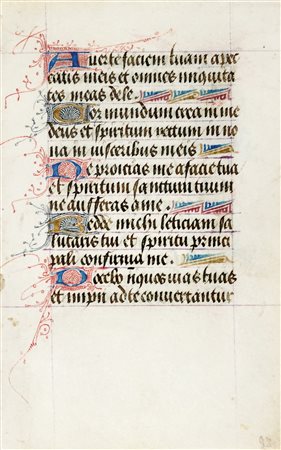 Auerte faciem tuam a pec
catis meis et omnes iniquita
tes meas dele.
Cor mundum crea in me
deus et spiritum rectum in no
ua in uisceribus meis
Ne proicias me a facie tua
et spiritum sanctum tuum
ne auferas a me.
Redde michi leticiam sa
lutaris tui et spiritu princi
pali confirma me.
Doceb iniquos uias tuas
et impii ad te conuertantur